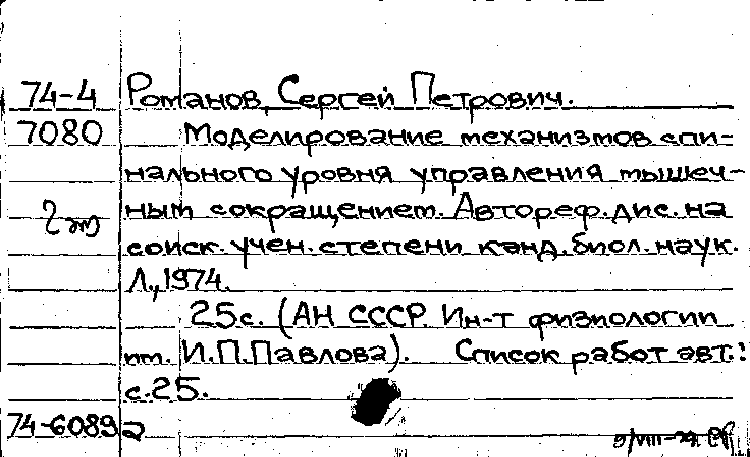 74-4 Романов, Сергей Петрович.
7080 Моделирование механизмов спи-
нального уровня управления мышеч-
ным сокращением. Автореф. дис. на
соиск. учен. степени канд. биол. наук.
Л., 1974.
25с. (АН СССР. Ин-т физиологии
им. И.П.Павлова). Список работ авт.:
с.25.
74-6089а